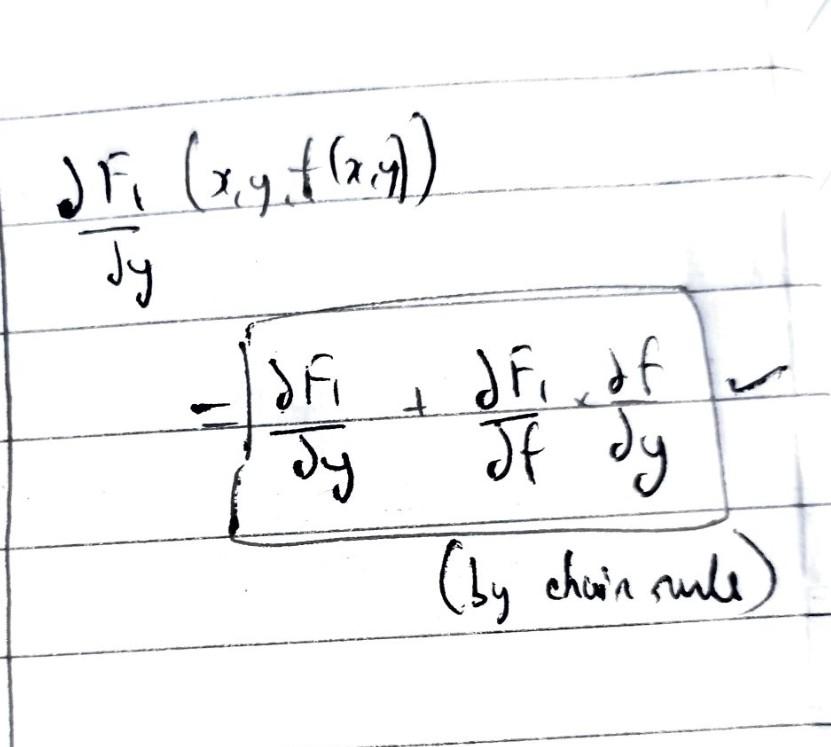 ∂F₁/∂y (x,y,f(x,y))
= ∂F₁/∂y + ∂F₁/∂f × ∂f/∂y ✓
(by chain rule)